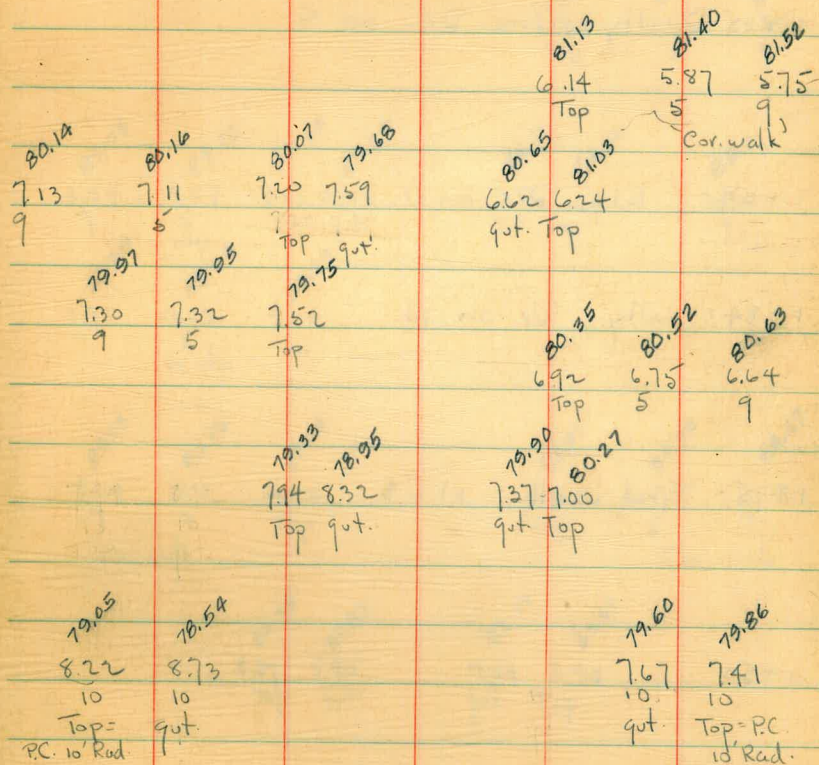 81.13 81.40 81.52
6.14 5.87 5.75
Top 5 9
Cor. walk
80.14 80.16 80.07 79.68 80.65 81.03
7.13 7.11 7.20 7.59 6.62 6.24
9 5 Top gut. gut. Top
79.97 79.95 79.75
7.30 7.32 7.52
9 5 Top
80.35 80.52 80.63
6.92 6.75 6.64
Top 5 9
79.33 78.95 79.90 80.27
7.94 8.32 7.37 7.00
Top gut. gut Top
79.05 78.54 79.60 79.86
8.22 8.73 7.67 7.41
10 10 10 10
Top= gut. gut Top=P.C.
P.C. 10' Rad. 10' Rad.